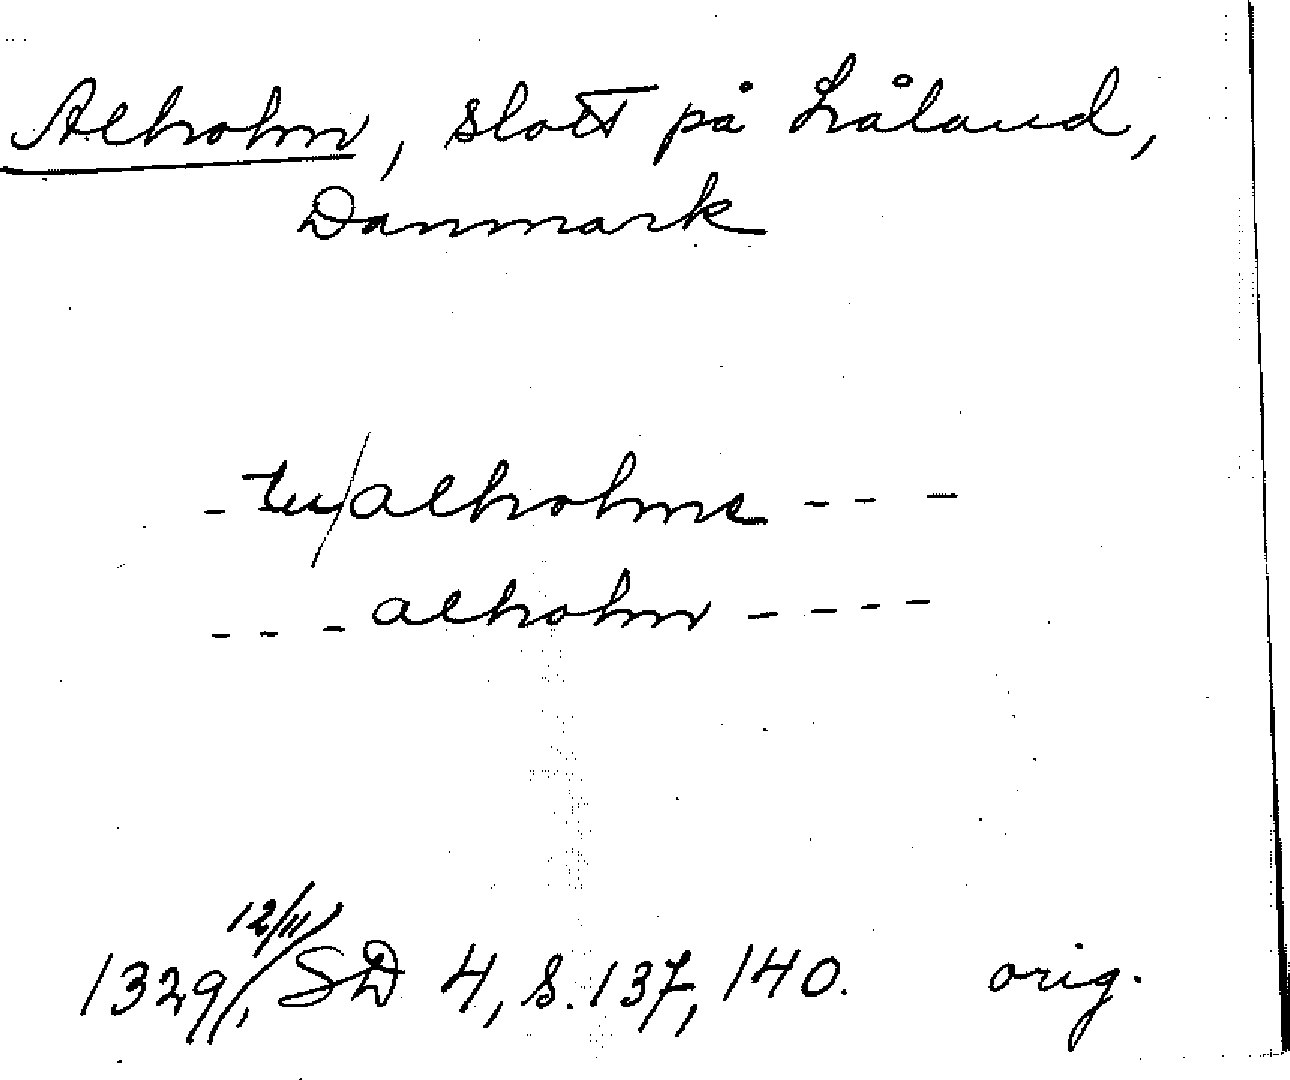 Alholm, slott på Låland,
Danmark
- tu/alholme - - -
- - - alholm - - - -
1329 12/11, SD 4, s. 137, 140. orig.